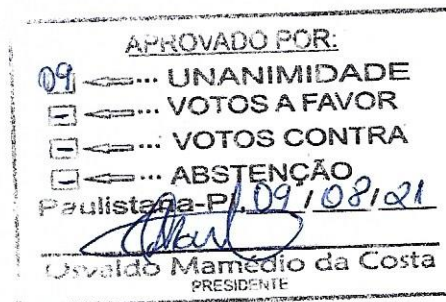 APROVADO POR:
09 ⇐··· UNANIMIDADE
- ⇐··· VOTOS A FAVOR
- ⇐··· VOTOS CONTRA
- ⇐··· ABSTENÇÃO
Paulistana-PI, 09 / 08 / 21
Osvaldo Mamédio da Costa
PRESIDENTE